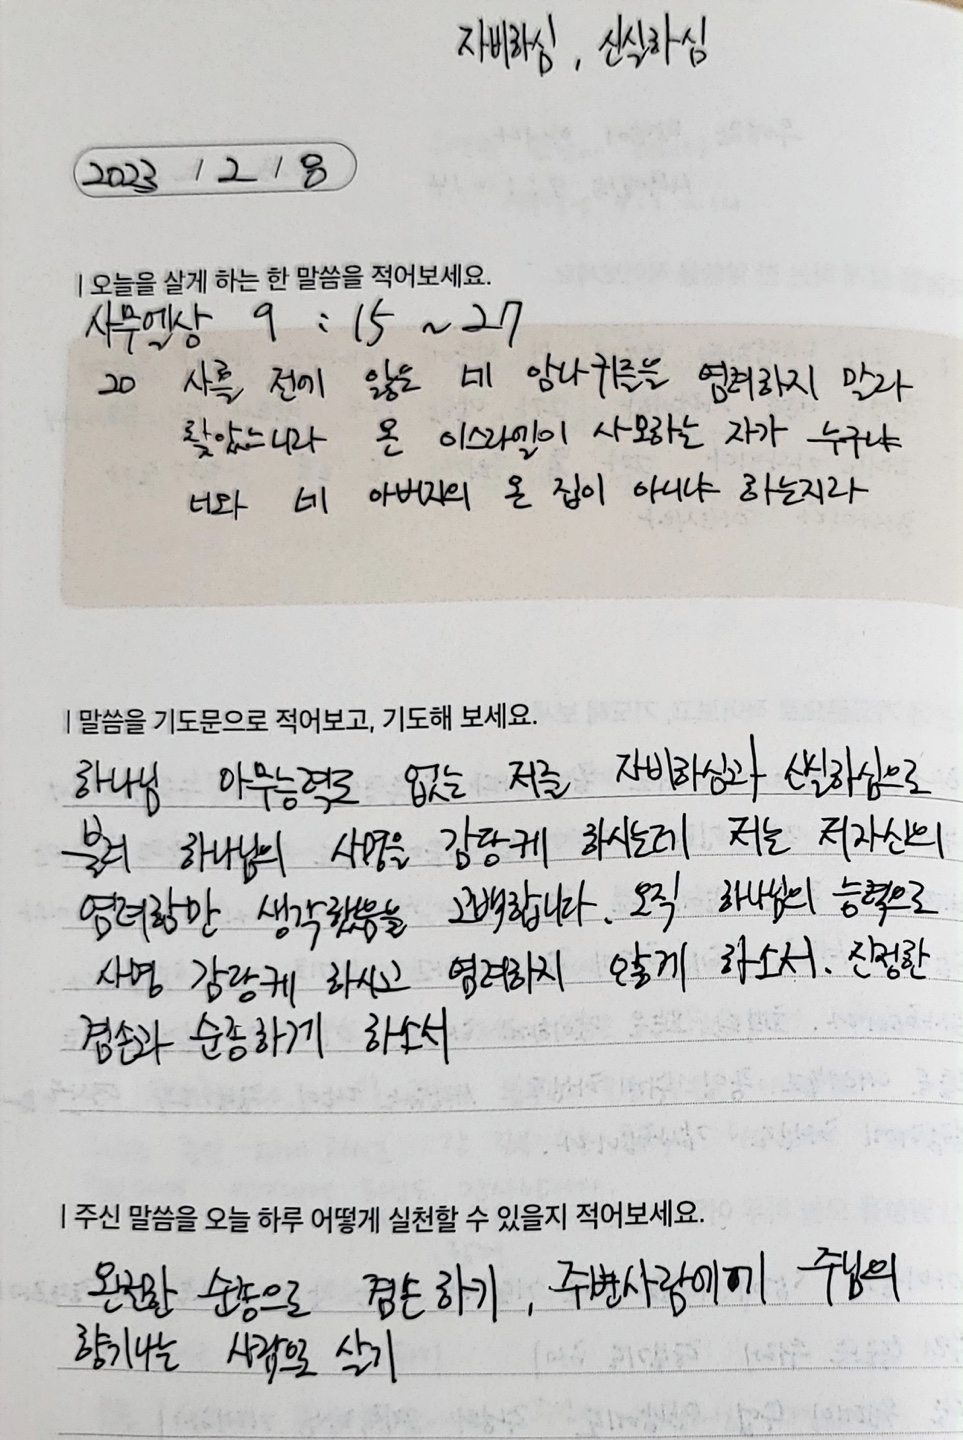 자비하심, 신실하심
2023 / 2 / 8
| 오늘을 살게 하는 한 말씀을 적어보세요.
사무엘상 9 : 15 ~ 27
20 사흘 전에 잃은 네 암나귀들을 염려하지 말라
찾았느니라 온 이스라엘이 사모하는 자가 누구냐
너와 네 아버지의 온 집이 아니냐 하는지라
| 말씀을 기도문으로 적어보고, 기도해 보세요.
하나님 아무능력도 없는 저를 자비하심과 신실하심으로
불러 하나님의 사명을 감당케 하시는데 저는 저자신의
염려함만 생각했음을 고백합니다. 오직 하나님의 능력으로
사명 감당케 하시고 염려하지 않게 하소서. 진정한
겸손과 순종하게 하소서
| 주신 말씀을 오늘 하루 어떻게 실천할 수 있을지 적어보세요.
온전한 순종으로 겸손하기, 주변사람에게 주님의
향기나는 사람으로 살기